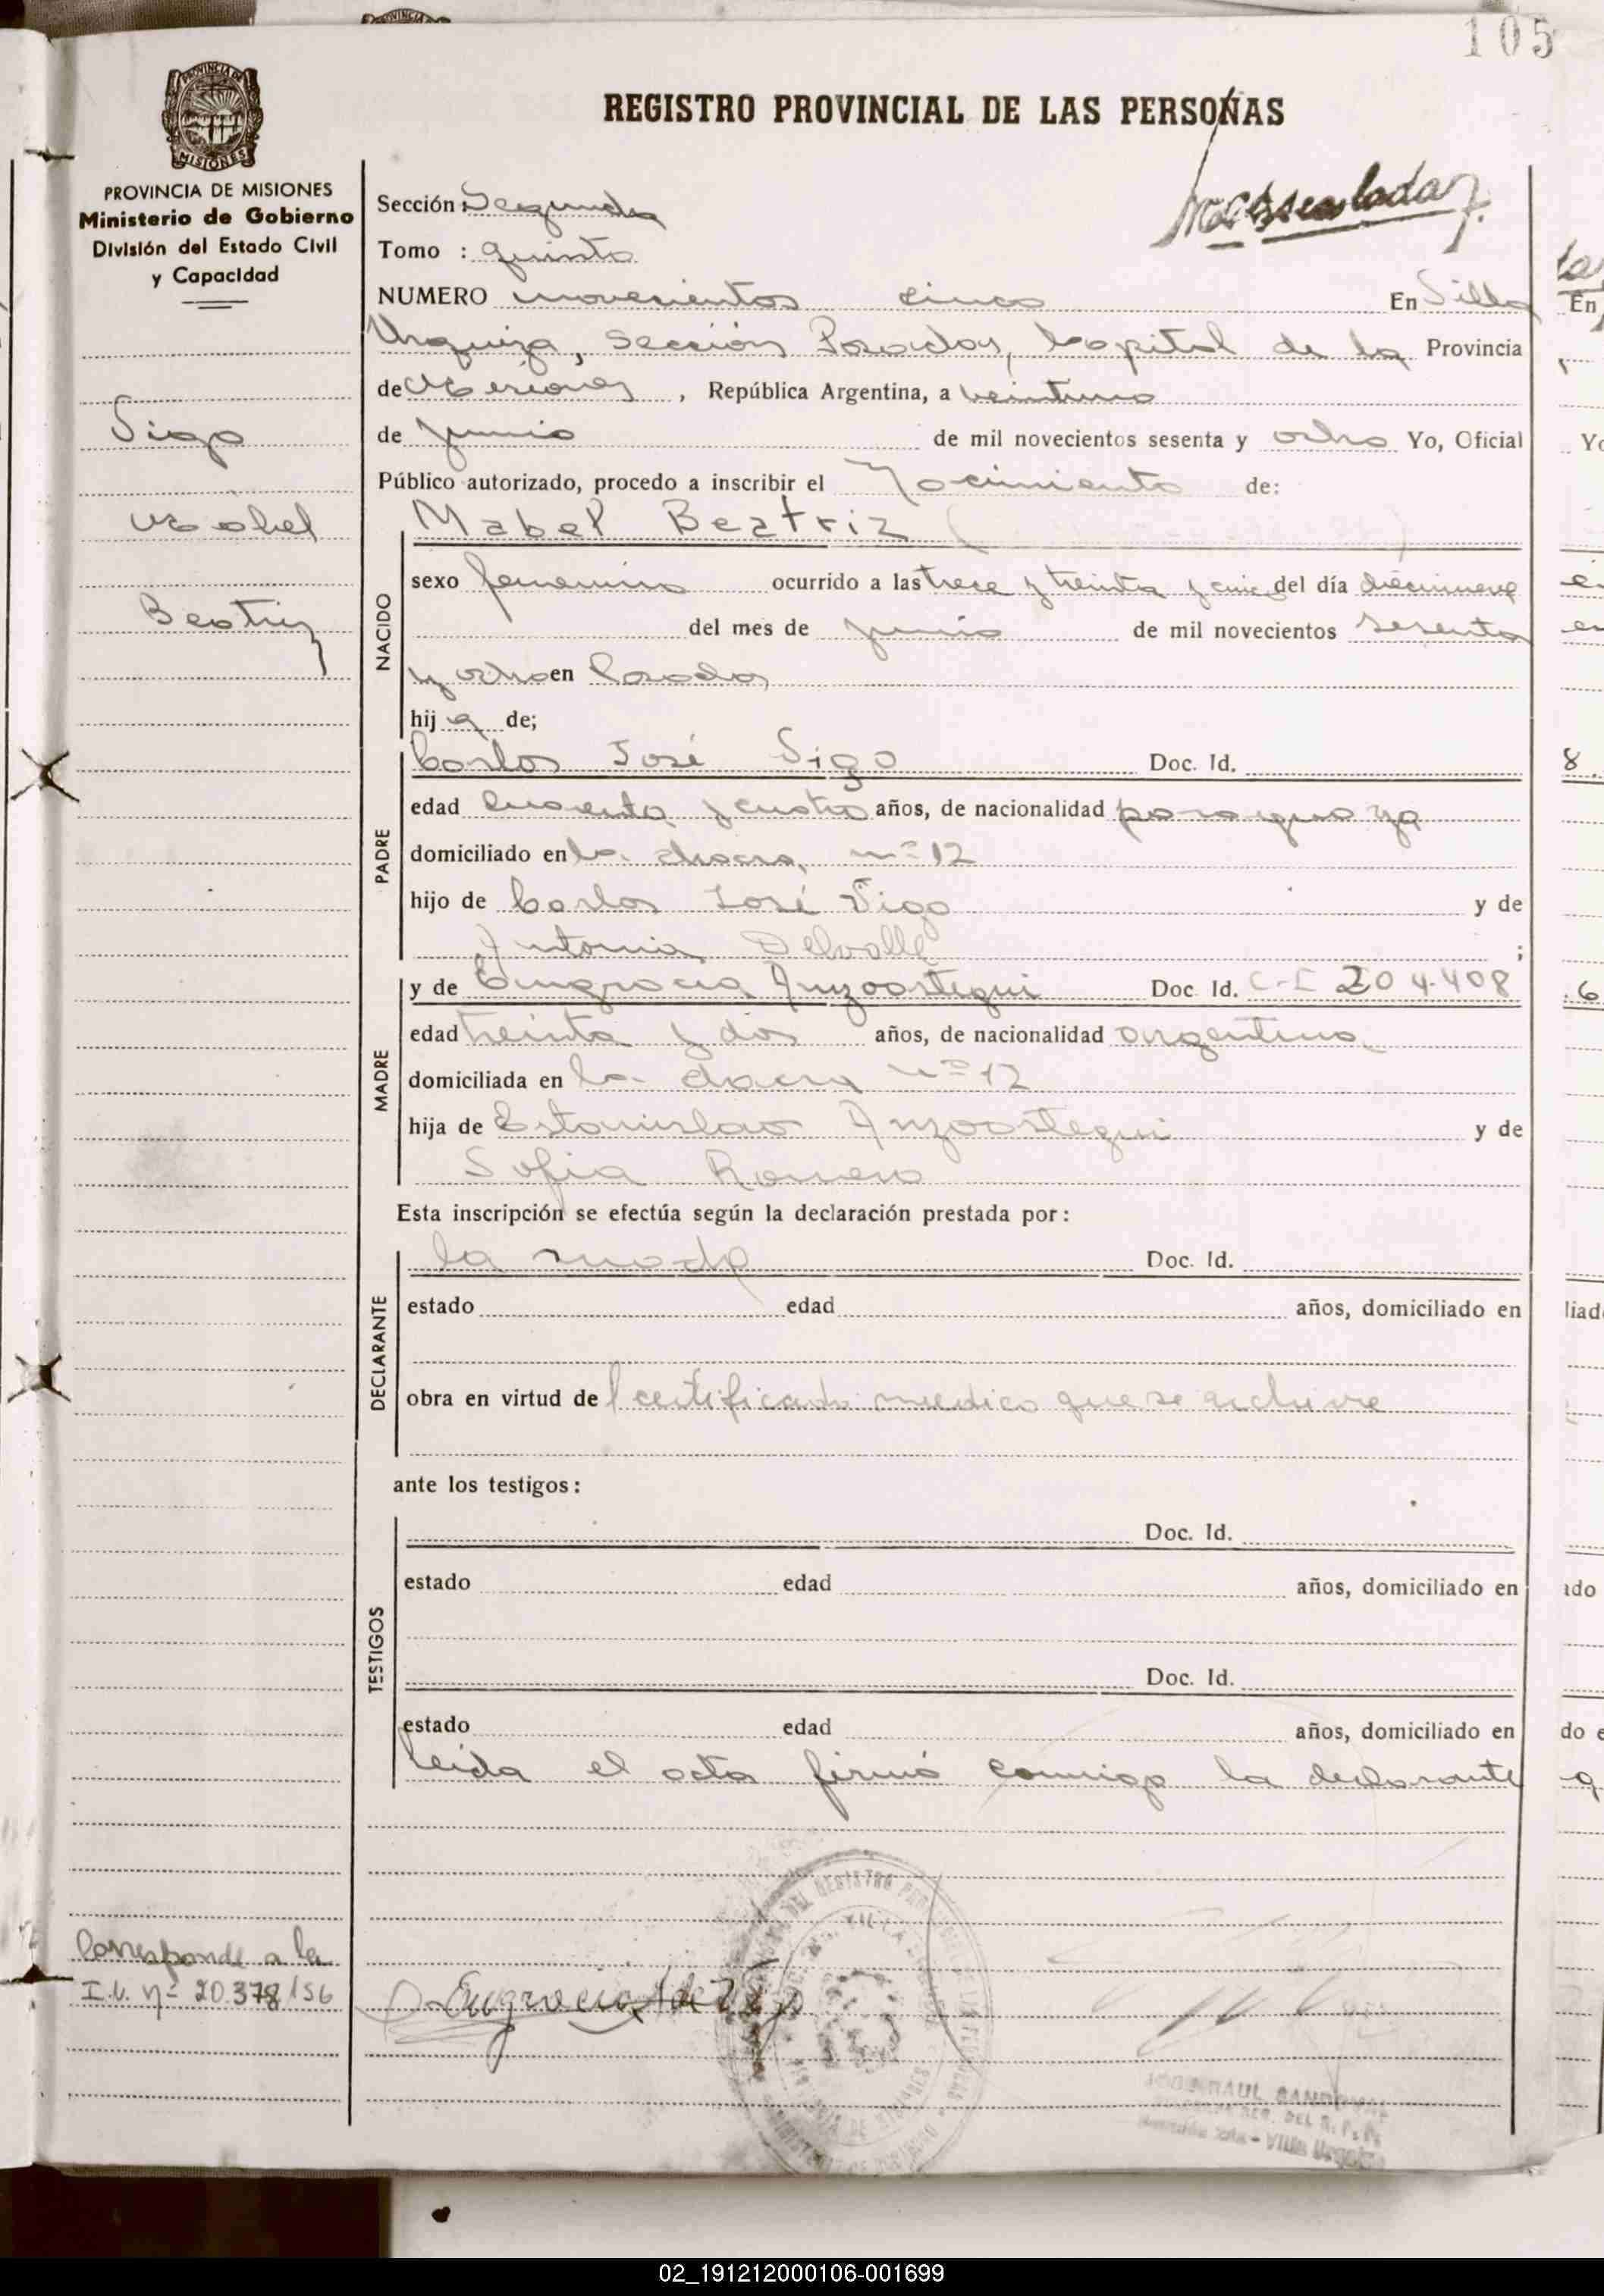 105
PROVINCIA DE MISIONES
REGISTRO PROVINCIAL DE LAS PERSONAS
PROVINCIA DE MISIONES
Ministerio de Gobierno
División del Estado Civil
y Capacidad
Sección: Segunda
Tomo : quinto
NUMERO novecientos cinco En Villa
Urquiza, Sección Posadas, Capital de la Provincia
de Misiones, República Argentina, a veintiuno
de Junio de mil novecientos sesenta y ocho Yo, Oficial
Vigo
Público autorizado, procedo a inscribir el Nacimiento de:
Mabel
Mabel Beatriz
NACIDO
sexo femenino ocurrido a las trece y treinta y cinco del día diecinueve
Beatriz
del mes de junio de mil novecientos sesenta
y ocho en Posadas
hija de;
PADRE
Carlos José Vigo Doc. Id.
edad cuarenta y cuatro años, de nacionalidad paraguaya
domiciliado en la chacra nº 12
hijo de Carlos José Vigo y de
Antonia Delvalle ;
MADRE
y de Engracia Anzoategui Doc. Id. C-I 204.408
edad treinta y dos años, de nacionalidad argentina
domiciliada en la chacra nº 12
hija de Estanislao Anzoategui y de
Sofia Romero
Esta inscripción se efectúa según la declaración prestada por:
DECLARANTE
la madre Doc. Id.
estado edad años, domiciliado en
obra en virtud del certificado medico que se archiva
ante los testigos:
TESTIGOS
Doc. Id.
estado edad años, domiciliado en
Doc. Id.
estado edad años, domiciliado en
leida el acta firmó conmigo la declarante
Corresponde a la
I.L. nº 20.378/56
Engracia A de Vigo
RAUL
DEL R. P. P.
Villa Urquiza
02_191212000106-001699